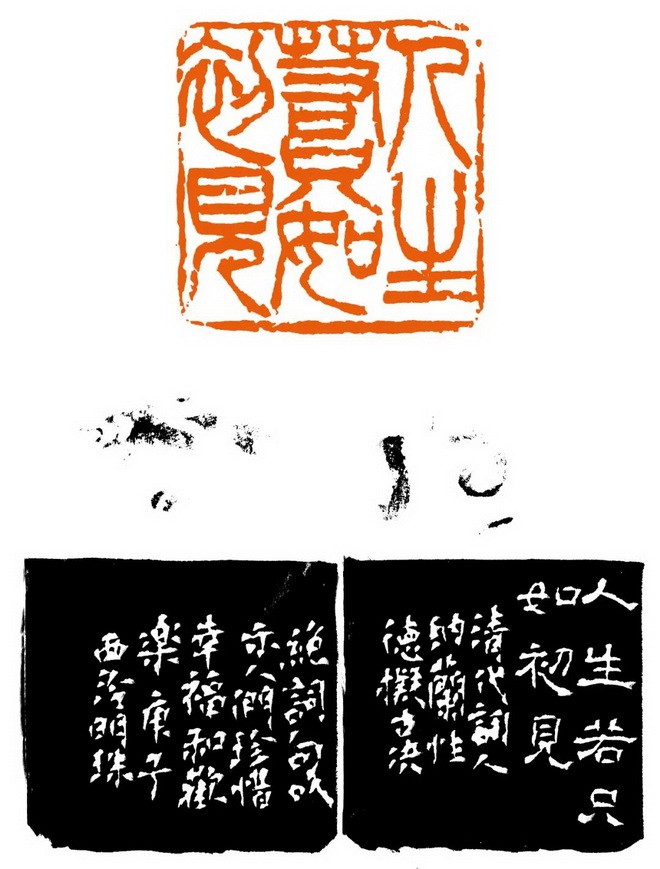 人生
若只如
初見
人生若只
如初見
清代詞人
納蘭性
德擬古决
絕詞句以
示人間珍惜
幸福和歡
楽庚子
西泠明珠